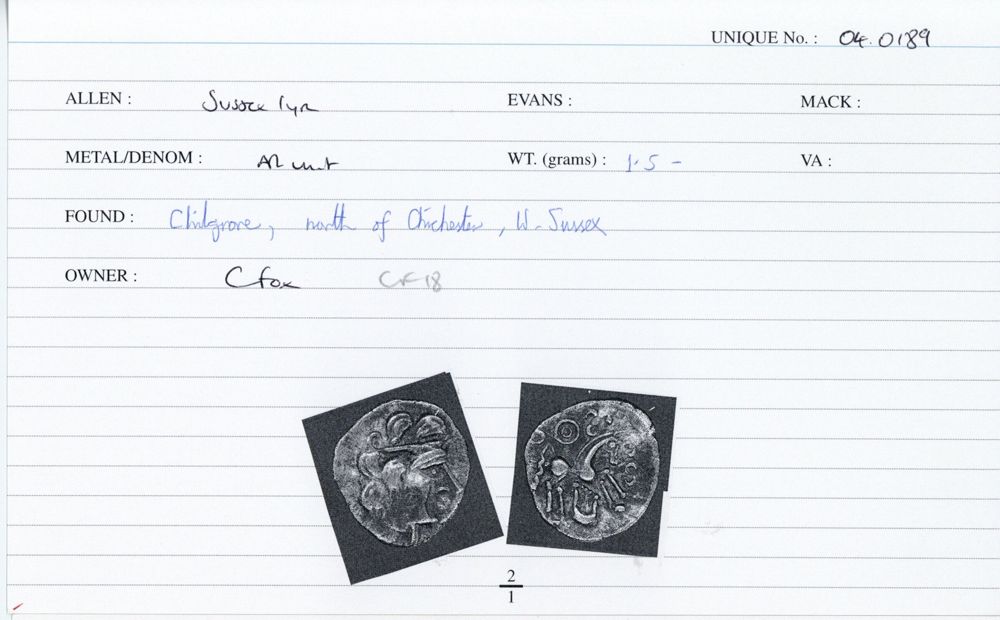 UNIQUE No. : 04.0189
ALLEN : Sussex lyre EVANS : MACK :
METAL/DENOM : AR unit WT. (grams) : 1.5 - VA :
FOUND : Chilgrove, north of Chichester, W. Sussex
OWNER : C Fox CF 18
2
1